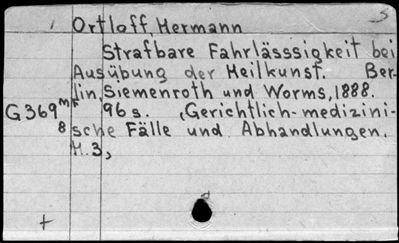 Ortloff, Hermann
Strafbare Fahrlässsigkeit bei
Ausübung der Heilkunst. Ber-
lin, Siemenroth und Worms, 1888.
G369 96 s. (Gerichtlich-medizini-
8 sche Fälle und Abhandlungen.
H. 3,